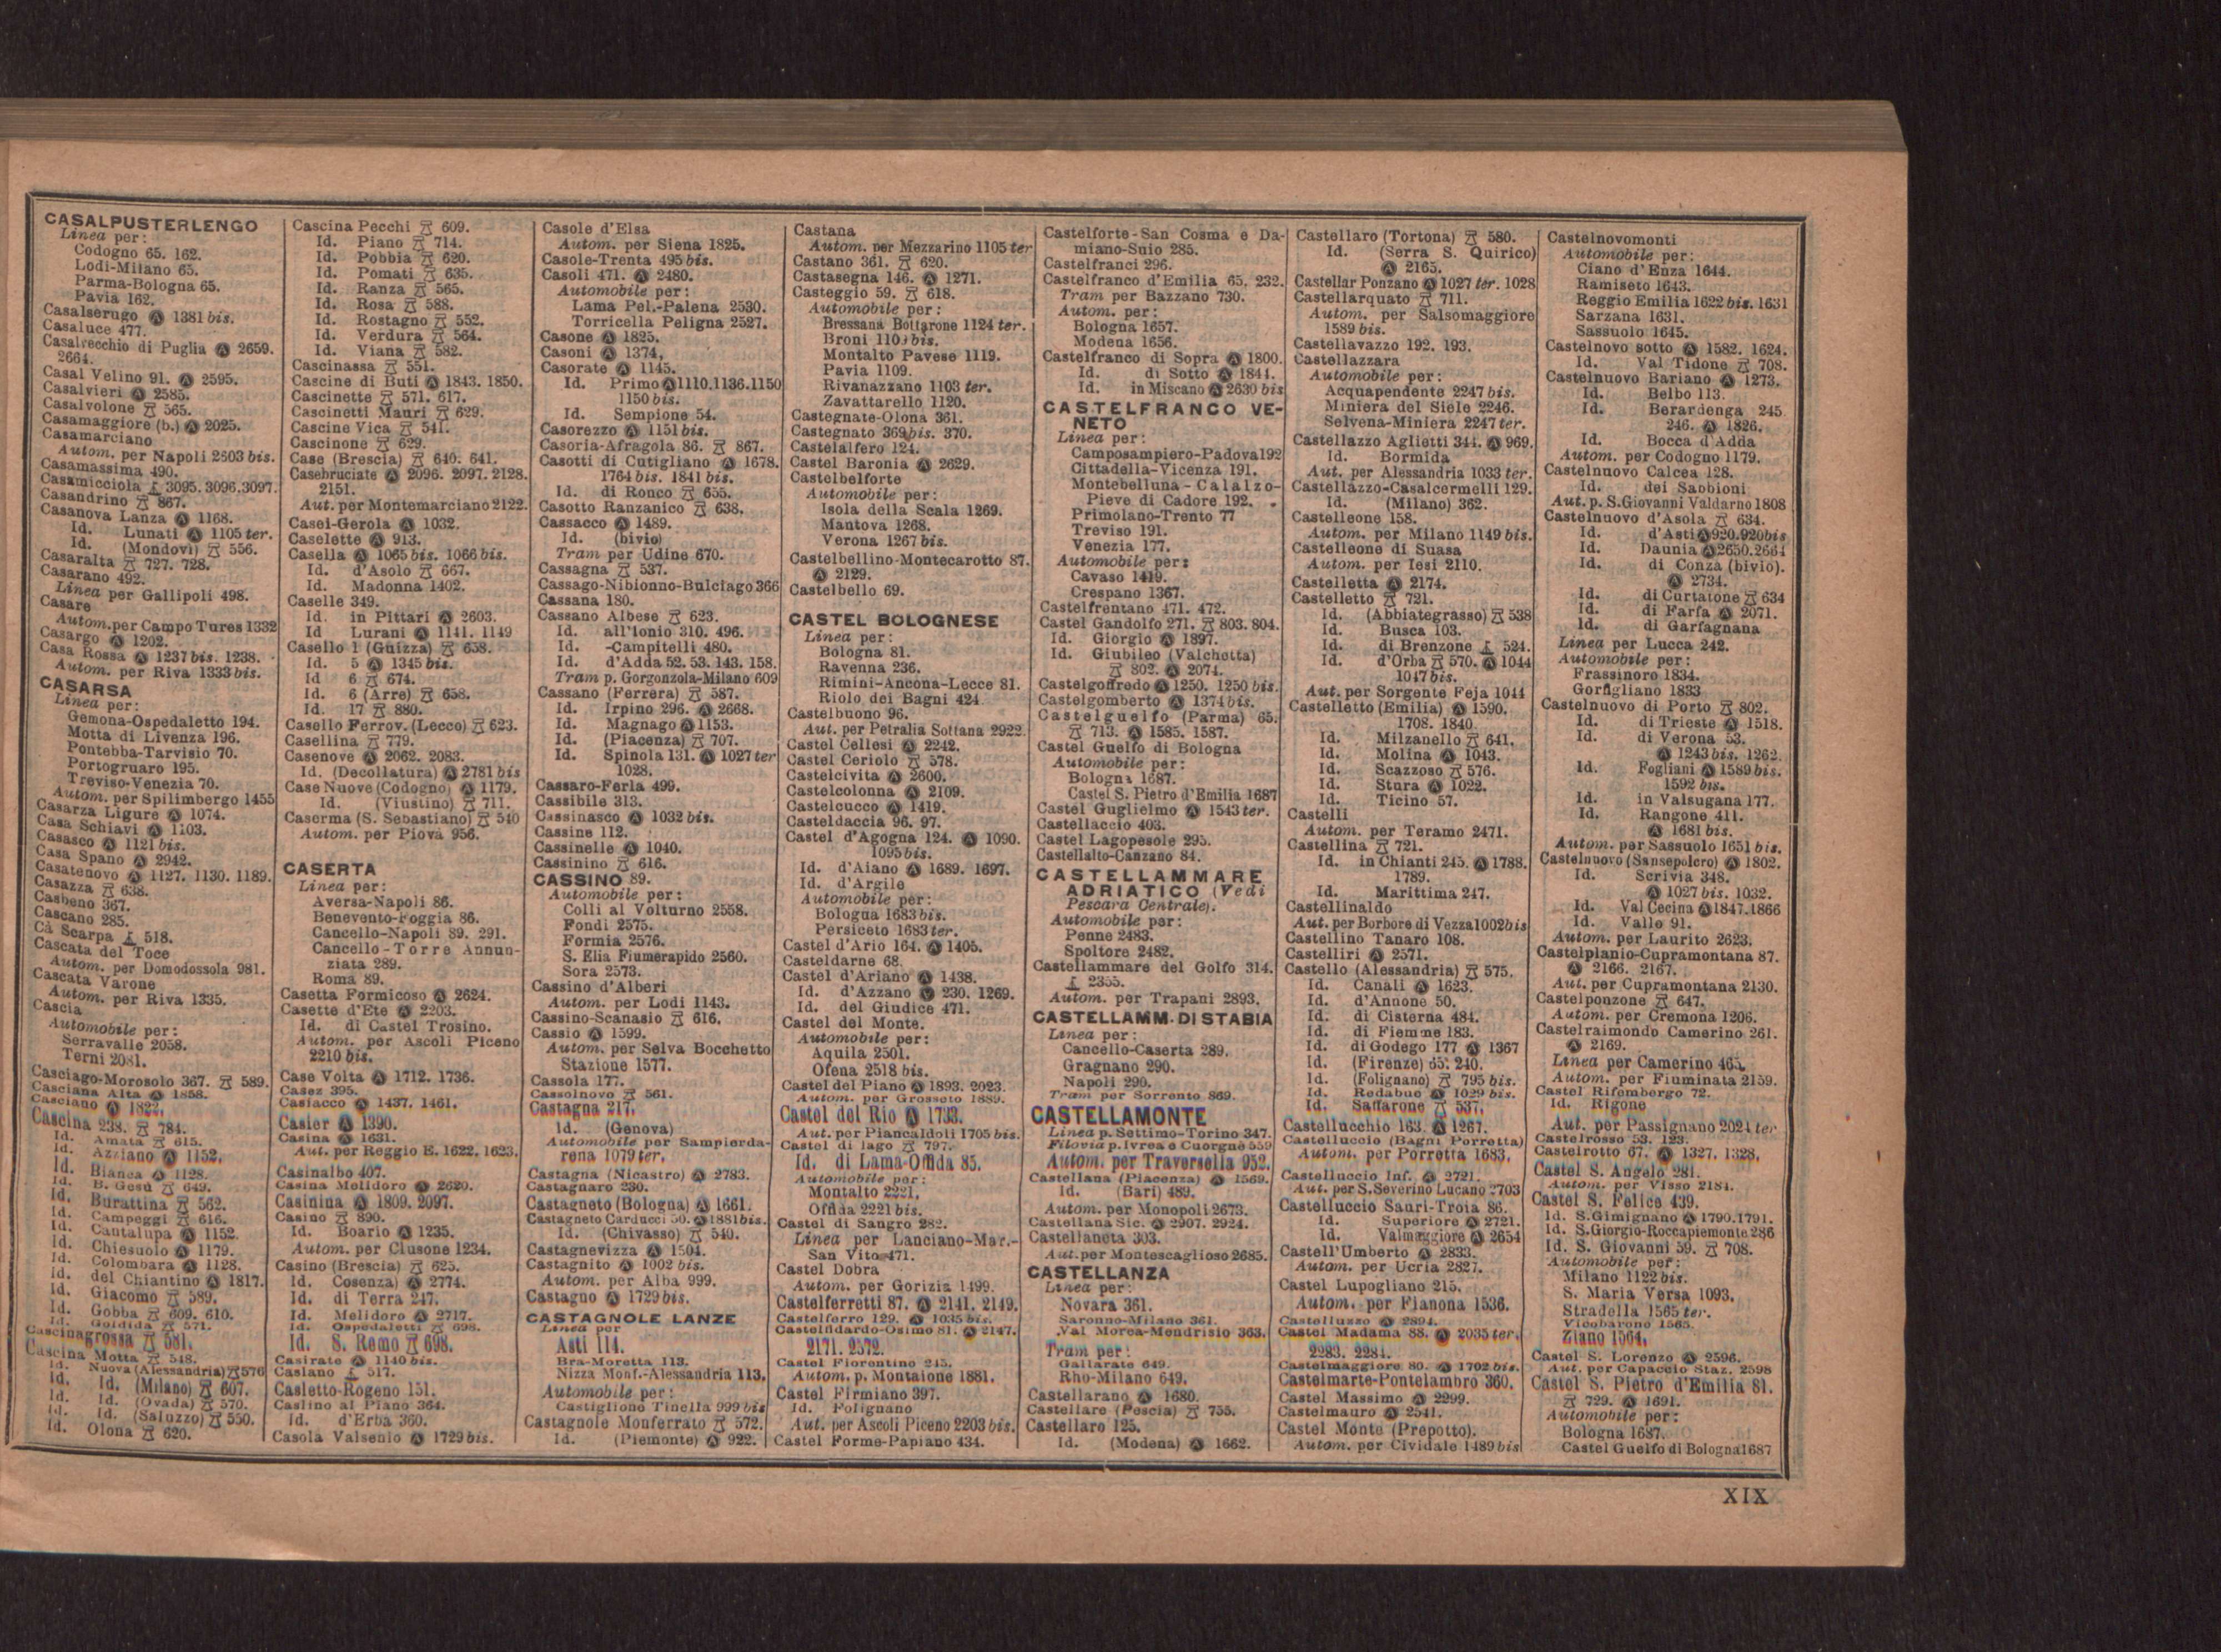 CASALPUSTERLENGO
Linea per:
Codogno 65. 162.
Lodi-Milano 65.
Parma-Bologna 65.
Pavia 162.
Casalserugo Ⓐ 1381 bis.
Casaluce 477.
Casalvecchio di Puglia Ⓐ 2659.
2664.
Casal Velino 91. Ⓐ 2595.
Casalvieri Ⓐ 2585.
Casalvolone 565.
Casamaggiore (b.) Ⓐ 2025.
Casamarciano
Autom. per Napoli 2603 bis.
Casamassima 490.
Casamicciola 3095. 3096. 3097.
Casandrino 867.
Casanova Lanza Ⓐ 1168.
Id. Lunati Ⓐ 1105 ter.
Id. (Mondovì) 556.
Casaralta 727. 728.
Casarano 492.
Linea per Gallipoli 498.
Casare
Autom. per Campo Tures 1332
Casargo Ⓐ 1202.
Casa Rossa Ⓐ 1237 bis. 1238.
Autom. per Riva 1333 bis.
CASARSA
Linea per:
Gemona-Ospedaletto 194.
Motta di Livenza 196.
Pontebba-Tarvisio 70.
Portogruaro 195.
Treviso-Venezia 70.
Autom. per Spilimbergo 1455
Casarza Ligure Ⓐ 1074.
Casa Schiavi Ⓐ 1103.
Casasco Ⓐ 1121 bis.
Casa Spano Ⓐ 2942.
Casatenovo Ⓐ 1127. 1130. 1189.
Casazza 638.
Casbeno 367.
Cascano 285.
Cà Scarpa 518.
Cascata del Toce
Autom. per Domodossola 981.
Cascata Varone
Autom. per Riva 1335.
Cascia
Automobile per:
Serravalle 2058.
Terni 2081.
Casciago-Morosolo 367. 589.
Casciana Alta Ⓐ 1858.
Casciano Ⓐ 1822.
Cascina 238. 784.
Id. Amata 615.
Id. Azziano Ⓐ 1152.
Id. Bianca Ⓐ 1128.
Id. B. Gesù 649.
Id. Burattina 562.
Id. Campeggi 616.
Id. Cantalupa Ⓐ 1152.
Id. Chiesuolo Ⓐ 1179.
Id. Colombara Ⓐ 1128.
Id. del Chiantino Ⓐ 1817.
Id. Giacomo 589.
Id. Gobba 609. 610.
Id. Goldida 571.
Cascinagrossa 581.
Cascina Motta 548.
Id. Nuova (Alessandria) 576
Id. Id. (Milano) 607.
Id. Id. (Ovada) 570.
Id. Id. (Saluzzo) 550.
Id. Olona 620.
Cascina Pecchi 609.
Id. Piano 714.
Id. Pobbia 620.
Id. Pomati 635.
Id. Ranza 565.
Id. Rosa 588.
Id. Rostagno 552.
Id. Verdura 564.
Id. Viana 582.
Cascinassa 551.
Cascine di Buti Ⓐ 1843. 1850.
Cascinette 571. 617.
Cascinetti Mauri 629.
Cascine Vica 541.
Cascinone 629.
Case (Brescia) 640. 641.
Casebruciate Ⓐ 2096. 2097. 2128.
2151.
Aut. per Montemarciano 2122.
Casei-Gerola Ⓐ 1032.
Caselette Ⓐ 913.
Casella Ⓐ 1065 bis. 1066 bis.
Id. d'Asolo 667.
Id. Madonna 1402.
Caselle 349.
Id. in Pittari Ⓐ 2603.
Id Lurani Ⓐ 1141. 1149
Casello 1 (Guizza) 658.
Id. 5 Ⓐ 1345 bis.
Id 6 674.
Id. 6 (Arre) 658.
Id. 17 880.
Casello Ferrov. (Lecco) 623.
Casellina 779.
Casenove Ⓐ 2062. 2083.
Id. (Decollatura) Ⓐ 2781 bis
Case Nuove (Codogno) Ⓐ 1179.
Id. (Viustino) 711.
Caserma (S. Sebastiano) 540
Autom. per Piovà 956.
CASERTA
Linea per:
Aversa-Napoli 86.
Benevento-Foggia 86.
Cancello-Napoli 89. 291.
Cancello-Torre Annun-
ziata 289.
Roma 89.
Casetta Formicoso Ⓐ 2624.
Casette d'Ete Ⓐ 2203.
Id. di Castel Trosino.
Autom. per Ascoli Piceno
2210 bis.
Case Volta Ⓐ 1712. 1736.
Casez 395.
Casiacco Ⓐ 1437. 1461.
Casier Ⓐ 1390.
Casina Ⓐ 1631.
Aut. per Reggio E. 1622. 1623.
Casinalbo 407.
Casina Melidoro Ⓐ 2620.
Casinina Ⓐ 1809. 2097.
Casino 890.
Id. Boario Ⓐ 1235.
Autom. per Clusone 1234.
Casino (Brescia) 625.
Id. Cosenza) Ⓐ 2774.
Id. di Terra 247.
Id. Melidoro Ⓐ 2717.
Id. Ospedaletti 698.
Id. S. Remo 698.
Casirate Ⓐ 1140 bis.
Caslano 517.
Casletto-Rogeno 151.
Caslino al Piano 364.
Id. d'Erba 360.
Casola Valsenio Ⓐ 1729 bis.
Casole d'Elsa
Autom. per Siena 1825.
Casole-Trenta 495 bis.
Casoli 471. Ⓐ 2480.
Automobile per:
Lama Pel.-Palena 2530.
Torricella Peligna 2527.
Casone Ⓐ 1825.
Casoni Ⓐ 1374,
Casorate Ⓐ 1145.
Id. Primo Ⓐ 1110.1136.1150
1150 bis.
Id. Sempione 54.
Casorezzo Ⓐ 1151 bis.
Casoria-Afragola 86. 867.
Casotti di Cutigliano Ⓐ 1678.
1764 bis. 1841 bis.
Id. di Ronco 655.
Casotto Ranzanico 638.
Cassacco Ⓐ 1489.
Id. (bivio)
Tram per Udine 670.
Cassagna 537.
Cassago-Nibionno-Bulciago 366
Cassana 180.
Cassano Albese 623.
Id. all'Ionio 310. 496.
Id. -Campitelli 480.
Id. d'Adda 52. 53. 143. 158.
Tram p. Gorgonzola-Milano 609
Cassano (Ferrera) 587.
Id. Irpino 296. Ⓐ 2668.
Id. Magnago Ⓐ 1153.
Id. (Piacenza) 707.
Id. Spinola 131. Ⓐ 1027 ter
1028.
Cassaro-Ferla 499.
Cassibile 313.
Cassinasco Ⓐ 1032 bis.
Cassine 112.
Cassinelle Ⓐ 1040.
Cassinino 616.
CASSINO 89.
Automobile per:
Colli al Volturno 2558.
Fondi 2575.
Formia 2576.
S. Elia Fiumerapido 2560.
Sora 2573.
Cassino d'Alberi
Autom. per Lodi 1143.
Cassino-Scanasio 616.
Cassio Ⓐ 1599.
Autom. per Selva Bocchetto
Stazione 1577.
Cassola 177.
Cassolnovo 561.
Castagna 217.
Id. (Genova)
Automobile per Sampierda-
rena 1079 ter.
Castagna (Nicastro) Ⓐ 2783.
Castagnaro 230.
Castagneto (Bologna) Ⓐ 1661.
Castagneto Carducci 50. Ⓐ 1881 bis.
Id. (Chivasso) 540.
Castagnevizza Ⓐ 1504.
Castagnito Ⓐ 1002 bis.
Autom. per Alba 999.
Castagno Ⓐ 1729 bis.
CASTAGNOLE LANZE
Linea per
Asti 114.
Bra-Moretta 113.
Nizza Monf.-Alessandria 113.
Automobile per:
Castiglione Tinella 999 bis
Castagnole Monferrato 572.
Id. (Piemonte) Ⓐ 922.
Castana
Autom. per Mezzarino 1105 ter
Castano 361. 620.
Castasegna 146. Ⓐ 1271.
Casteggio 59. 618.
Automobile per:
Bressana Bottarone 1124 ter.
Broni 1103 bis.
Montalto Pavese 1119.
Pavia 1109.
Rivanazzano 1103 ter.
Zavattarello 1120.
Castegnate-Olona 361.
Castegnato 369 bis. 370.
Castelalfero 124.
Castel Baronia Ⓐ 2629.
Castelbelforte
Automobile per:
Isola della Scala 1269.
Mantova 1268.
Verona 1267 bis.
Castelbellino-Montecarotto 87.
Ⓐ 2129.
Castelbello 69.
CASTEL BOLOGNESE
Linea per:
Bologna 81.
Ravenna 236.
Rimini-Ancona-Lecce 81.
Riolo dei Bagni 424
Castelbuono 96.
Aut. per Petralia Sottana 2922
Castel Cellesi Ⓐ 2242.
Castel Ceriolo 578.
Castelcivita Ⓐ 2600.
Castelcolonna Ⓐ 2109.
Castelcucco Ⓐ 1419.
Casteldaccia 96. 97.
Castel d'Agogna 124. Ⓐ 1090.
1095 bis.
Id. d'Aiano Ⓐ 1689. 1697.
Id. d'Argile
Automobile per:
Bologna 1683 bis.
Persiceto 1683 ter.
Castel d'Ario 164. Ⓐ 1405.
Casteldarne 68.
Castel d'Ariano Ⓐ 1438.
Id. d'Azzano Ⓐ 230. 1269.
Id. del Giudice 471.
Castel del Monte.
Automobile per:
Aquila 2501.
Ofena 2518 bis.
Castel del Piano Ⓐ 1893. 2023.
Autom. per Grosseto 1889.
Castel del Rio Ⓐ 1733.
Aut. per Piancaldoli 1705 bis.
Castel di Iago 797.
Id. di Lama-Offida 85.
Automobile per:
Montalto 2221.
Offida 2221 bis.
Castel di Sangro 282.
Linea per Lanciano-Mar.-
San Vito 471.
Castel Dobra
Autom. per Gorizia 1499.
Castelferretti 87. Ⓐ 2141. 2149.
Castelferro 129. Ⓐ 1035 bis.
Castelfidardo-Osimo 81. Ⓐ 2147.
2171. 2572.
Castel Fiorentino 245.
Autom. p. Montaione 1881.
Castel Firmiano 397.
Id. Folignano
Aut. per Ascoli Piceno 2203 bis.
Castel Forme-Papiano 434.
Castelforte-San Cosma e Da-
miano-Suio 285.
Castelfranci 296.
Castelfranco d'Emilia 65. 232.
Tram per Bazzano 730.
Autom. per:
Bologna 1657.
Modena 1656.
Castelfranco di Sopra Ⓐ 1800.
Id. di Sotto Ⓐ 1844.
Id. in Miscano Ⓐ 2630 bis
CASTELFRANCO VE-
NETO
Linea per:
Camposampiero-Padova 192
Cittadella-Vicenza 191.
Montebelluna-Calalzo-
Pieve di Cadore 192.
Primolano-Trento 77
Treviso 191.
Venezia 177.
Automobile per:
Cavaso 1419.
Crespano 1367.
Castelfrentano 471. 472.
Castel Gandolfo 271. 803. 804.
Id. Giorgio Ⓐ 1897.
Id. Giubileo (Valchetta)
802. Ⓐ 2074.
Castelgoffredo Ⓐ 1250. 1250 bis.
Castelgomberto Ⓐ 1374 bis.
Castelguelfo (Parma) 65.
713. Ⓐ 1585. 1587.
Castel Guelfo di Bologna
Automobile per:
Bologna 1687.
Castel S. Pietro d'Emilia 1687
Castel Guglielmo Ⓐ 1543 ter.
Castellaccio 403.
Castel Lagopesole 295.
Castellalto-Canzano 84.
CASTELLAMMARE
ADRIATICO (Vedi
Pescara Centrale).
Automobile per:
Penne 2483.
Spoltore 2482.
Castellammare del Golfo 314.
2355.
Autom. per Trapani 2893.
CASTELLAMM. DI STABIA
Linea per:
Cancello-Caserta 289.
Gragnano 290.
Napoli 290.
Tram per Sorrento 869.
CASTELLAMONTE
Linea p. Settimo-Torino 347.
Filovia p. Ivrea e Cuorgnè 559
Autom. per Traversella 952.
Castellana (Piacenza) Ⓐ 1569.
Id. (Bari) 489.
Autom. per Monopoli 2673.
Castellana Sic. Ⓐ 2907. 2924.
Castellaneta 303.
Aut. per Montescaglioso 2685.
CASTELLANZA
Linea per:
Novara 361.
Saronno-Milano 361.
Val Morea-Mendrisio 363.
Tram per:
Gallarate 649.
Rho-Milano 649.
Castellarano Ⓐ 1680.
Castellare (Pescia) 755.
Castellaro 125.
Id. (Modena) Ⓐ 1662.
Castellaro (Tortona) 580.
Id. (Serra S. Quirico)
Ⓐ 2165.
Castellar Ponzano Ⓐ 1027 ter. 1028
Castellarquato 711.
Autom. per Salsomaggiore
1589 bis.
Castellavazzo 192. 193.
Castellazzara
Automobile per:
Acquapendente 2247 bis.
Miniera del Siele 2246.
Selvena-Miniera 2247 ter.
Castellazzo Aglietti 344. Ⓐ 969.
Id. Bormida
Aut. per Alessandria 1033 ter.
Castellazzo-Casalcermelli 129.
Id. (Milano) 362.
Castelleone 158.
Autom. per Milano 1149 bis.
Castelleone di Suasa
Autom. per Iesi 2110.
Castelletta Ⓐ 2174.
Castelletto 721.
Id. (Abbiategrasso) 538
Id. Busca 103.
Id. di Brenzone 524.
Id. d'Orba 570. Ⓐ 1044
1047 bis.
Aut. per Sorgente Feja 1044
Castelletto (Emilia) Ⓐ 1590.
1708. 1840.
Id. Milzanello 641.
Id. Molina Ⓐ 1043.
Id. Scazzoso 576.
Id. Stura Ⓐ 1022.
Id. Ticino 57.
Castelli
Autom. per Teramo 2471.
Castellina 721.
Id. in Chianti 245. Ⓐ 1788.
1789.
Id. Marittima 247.
Castellinaldo
Aut. per Borbore di Vezza 1002 bis
Castellino Tanaro 108.
Castelliri Ⓐ 2571.
Castello (Alessandria) 575.
Id. Canali Ⓐ 1623.
Id. d'Annone 50.
Id. di Cisterna 484.
Id. di Fiemme 183.
Id. di Godego 177 Ⓐ 1367
Id. (Firenze) 65. 240.
Id. (Folignano) 795 bis.
Id. Redabue Ⓐ 1029 bis.
Id. Saffarone 537.
Castellucchio 163. Ⓐ 1267.
Castelluccio (Bagni Porretta)
Autom. per Porretta 1683.
Castelluccio Inf. Ⓐ 2721.
Aut. per S. Severino Lucano 2703
Castelluccio Sauri-Troia 86.
Id. Superiore Ⓐ 2721.
Id. Valmaggiore Ⓐ 2654
Castell'Umberto Ⓐ 2833.
Autom. per Ucria 2827.
Castel Lupogliano 215.
Autom. per Fianona 1536.
Castelluzzo Ⓐ 2894.
Castel Madama 88. Ⓐ 2035 ter.
2283. 2284.
Castelmaggiore 80. Ⓐ 1702 bis.
Castelmarte-Pontelambro 360.
Castel Massimo Ⓐ 2299.
Castelmauro Ⓐ 2541.
Castel Monte (Prepotto).
Autom. per Cividale 1489 bis
Castelnovomonti
Automobile per:
Ciano d'Enza 1644.
Ramiseto 1643.
Reggio Emilia 1622 bis. 1631
Sarzana 1631.
Sassuolo 1645.
Castelnovo sotto Ⓐ 1582. 1624.
Id. Val Tidone 708.
Castelnuovo Bariano Ⓐ 1273.
Id. Belbo 113.
Id. Berardenga 245
246. Ⓐ 1826.
Id. Bocca d'Adda
Autom. per Codogno 1179.
Castelnuovo Calcea 128.
Id. dei Sabbioni
Aut. p. S. Giovanni Valdarno 1808
Castelnuovo d'Asola 634.
Id. d'Asti Ⓐ 920. 920 bis
Id. Daunia Ⓐ 2650. 2664
Id. di Conza (bivio).
Ⓐ 2734.
Id. di Curtatone 634
Id. di Farfa Ⓐ 2071.
Id. di Garfagnana
Linea per Lucca 242.
Automobile per:
Frassinoro 1834.
Gorfigliano 1833
Castelnuovo di Porto 802.
Id. di Trieste Ⓐ 1518.
Id. di Verona 53.
Ⓐ 1243 bis. 1262.
Id. Fogliani Ⓐ 1589 bis.
1592 bis.
Id. in Valsugana 177.
Id. Rangone 411.
Ⓐ 1681 bis.
Autom. per Sassuolo 1651 bis.
Castelnuovo (Sansepolcro) Ⓐ 1802.
Id. Scrivia 348.
Ⓐ 1027 bis. 1032.
Id. Val Cecina Ⓐ 1847. 1866
Id. Vallo 91.
Autom. per Laurito 2623.
Castelplanio-Cupramontana 87.
Ⓐ 2166. 2167.
Aut. per Cupramontana 2130.
Castelponzone 647.
Autom. per Cremona 1206.
Castelraimondo Camerino 261.
Ⓐ 2169.
Linea per Camerino 465.
Autom. per Fiuminata 2159.
Castel Rifembergo 72.
Id. Rigone
Aut. per Passignano 2024 ter
Castelrosso 53. 123.
Castelrotto 67. Ⓐ 1327. 1328.
Castel S. Angelo 281.
Autom. per Visso 2184.
Castel S. Felice 439.
Id. S. Gimignano Ⓐ 1790. 1791.
Id. S. Giorgio-Roccapiemonte 286
Id. S. Giovanni 59. 708.
Automobile per:
Milano 1122 bis.
S. Maria Versa 1093.
Stradella 1565 ter.
Vicobarone 1565.
Ziano 1564.
Castel S. Lorenzo Ⓐ 2596.
Aut. per Capaccio Staz. 2598
Castel S. Pietro d'Emilia 81.
729. Ⓐ 1691.
Automobile per:
Bologna 1687.
Castel Guelfo di Bologna 1687
XIX